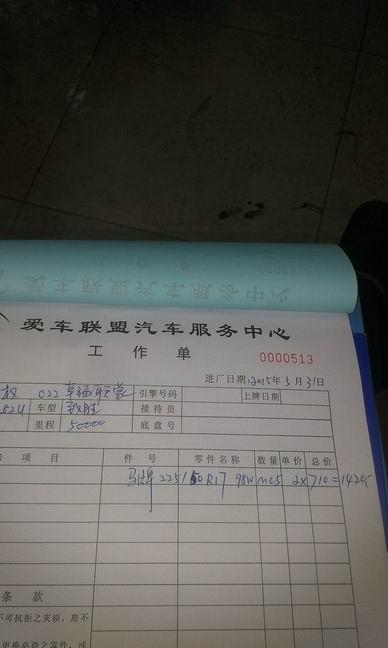 爱车联盟汽车服务中心
工作单
0000513
进厂日期:2015年5月31日
022 幸福联蒙 引擎号码 上牌日期
824 车型 致胜 接待员
里程 50000 底盘号
项目 件号 零件名称 数量 单价 总价
马牌 225/50R17 98W MC5 2X710=1420
条款
不可抗拒之灾损,恕不
更换必要之零件,或